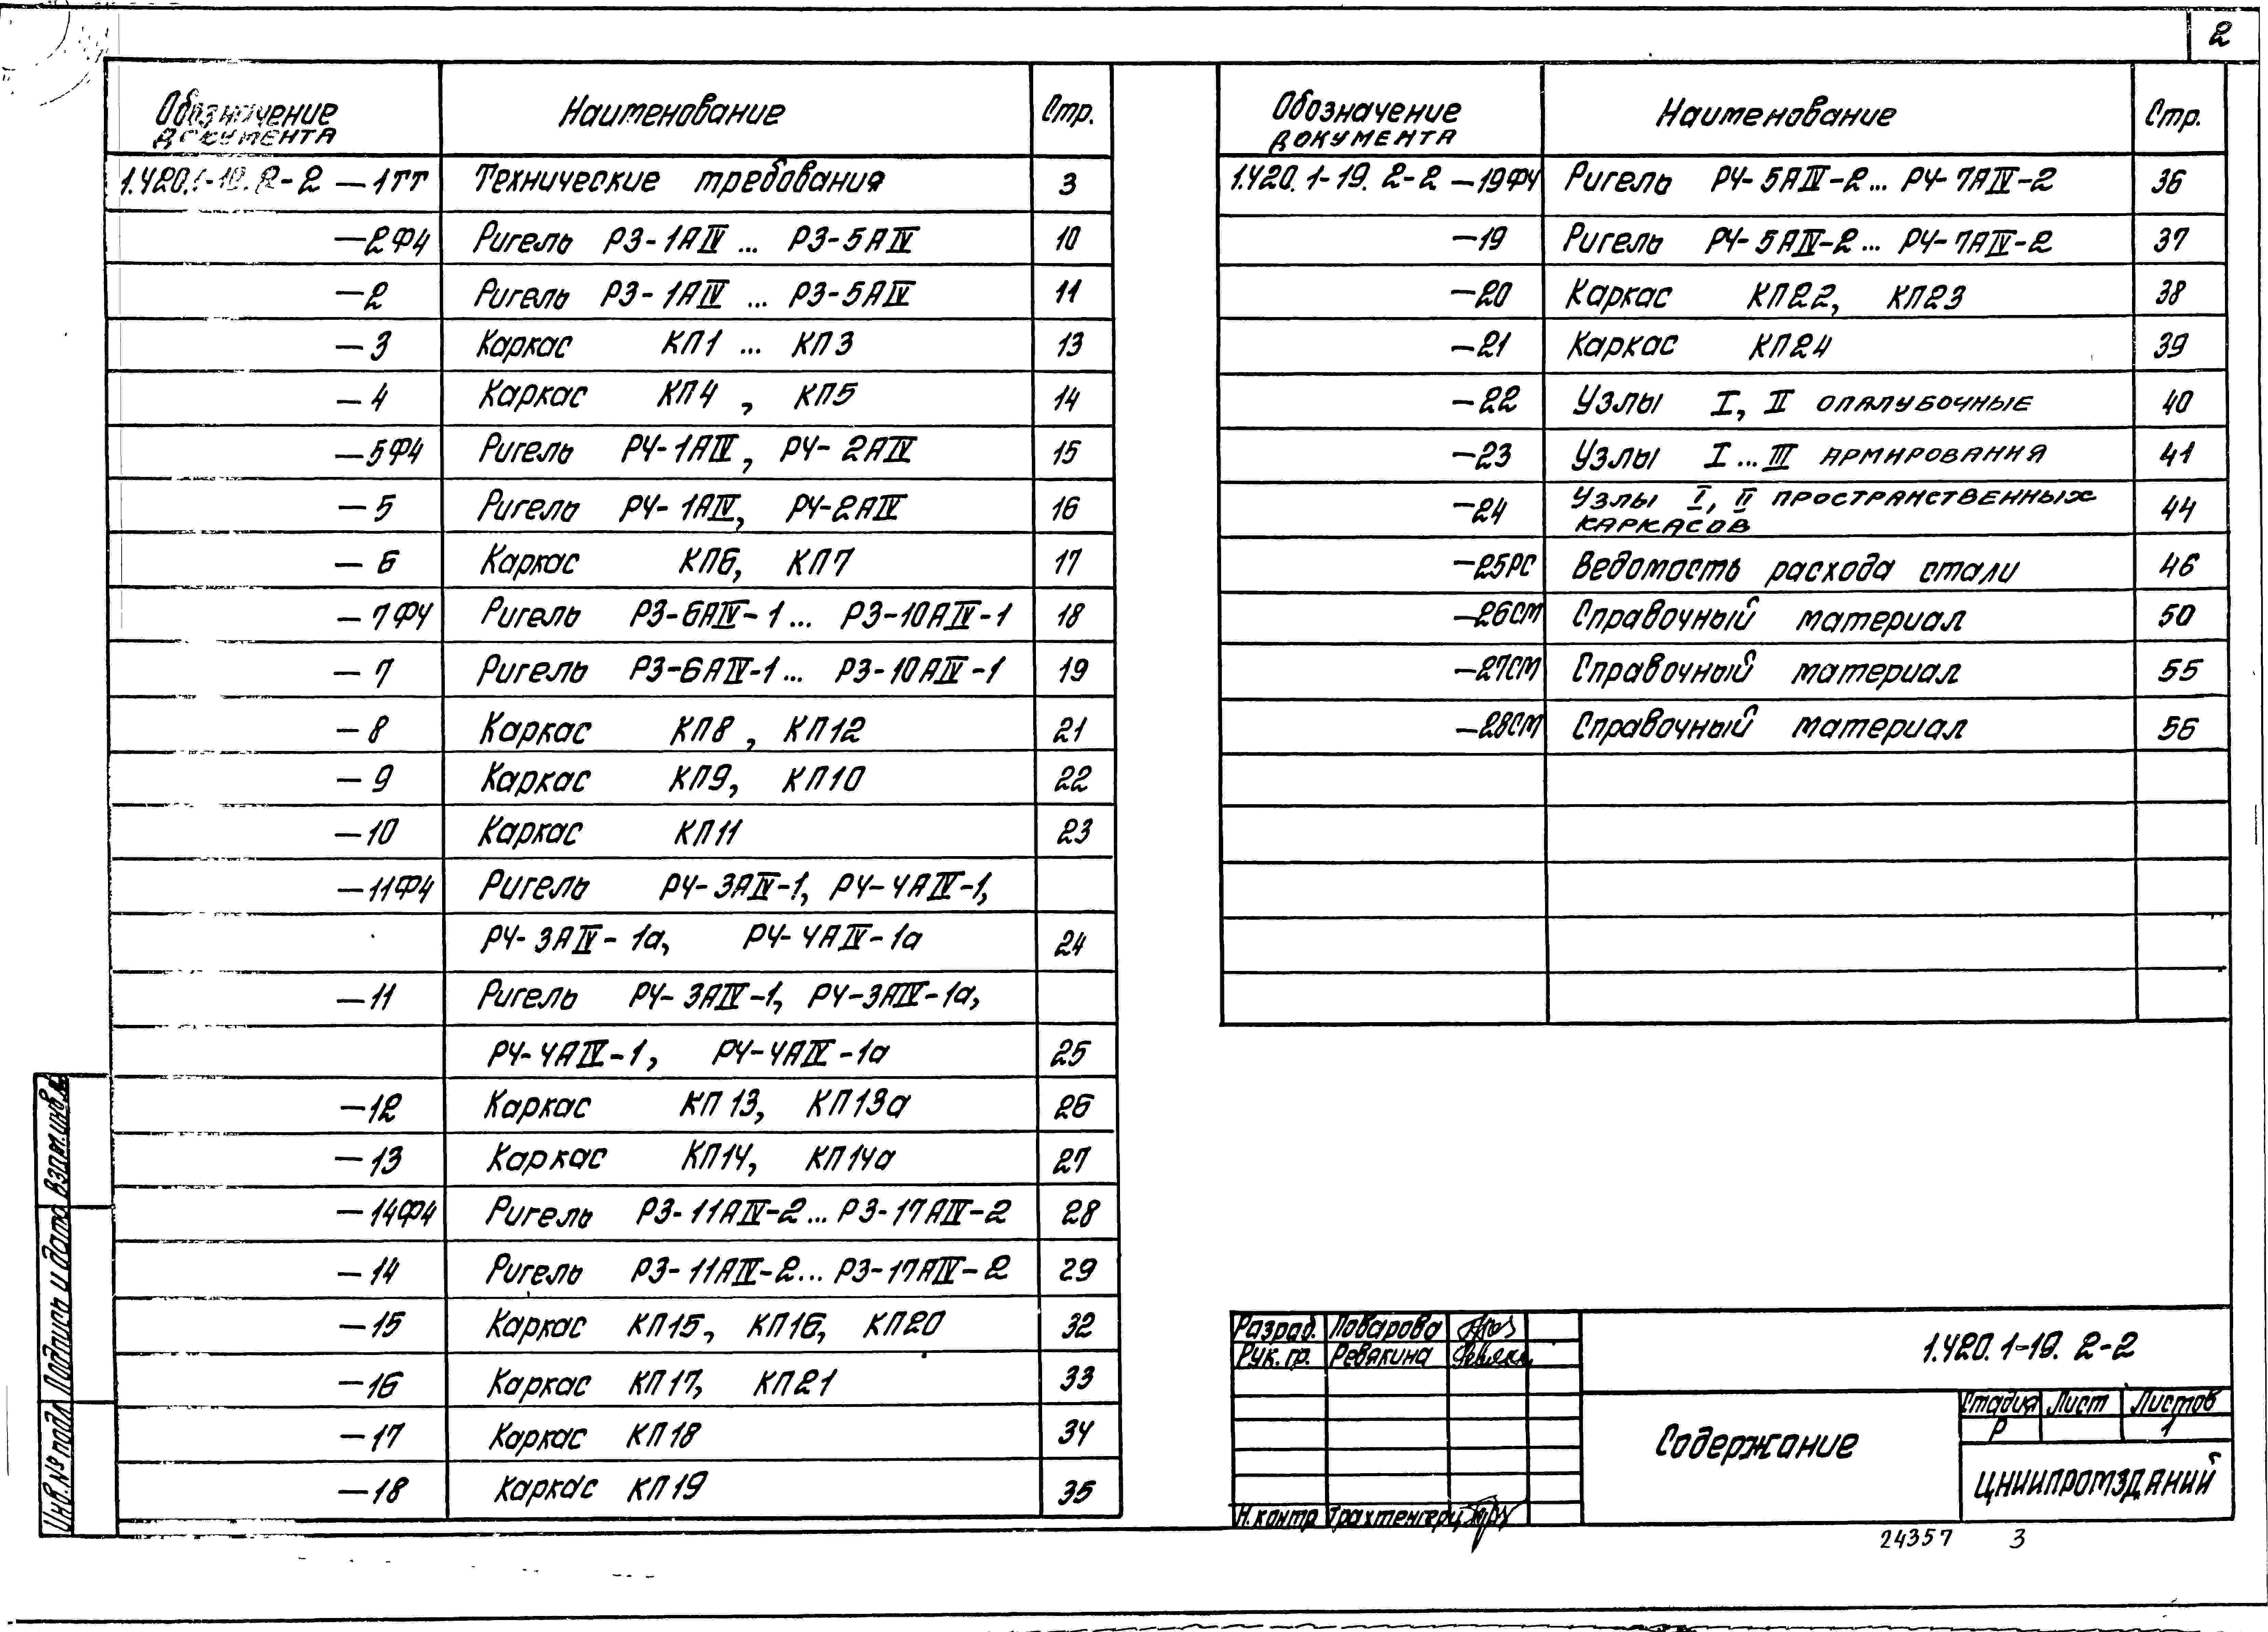 2
Обозначение документа Наименование Стр.
1.420.1-19.2-2 —1ТТ Технические требования 3
—2Ф4 Ригель Р3-1АIV ... Р3-5АIV 10
—2 Ригель Р3-1АIV ... Р3-5АIV 11
—3 Каркас КП1 ... КП3 13
—4 Каркас КП4, КП5 14
—5Ф4 Ригель Р4-1АIV, Р4-2АIV 15
—5 Ригель Р4-1АIV, Р4-2АIV 16
—6 Каркас КП6, КП7 17
—7Ф4 Ригель Р3-6АIV-1... Р3-10АIV-1 18
—7 Ригель Р3-6АIV-1... Р3-10АIV-1 19
—8 Каркас КП8, КП12 21
—9 Каркас КП9, КП10 22
—10 Каркас КП11 23
—11Ф4 Ригель Р4-3АIV-1, Р4-4АIV-1,
Р4-3АIV-1а, Р4-4АIV-1а 24
—11 Ригель Р4-3АIV-1, Р4-3АIV-1а,
Р4-4АIV-1, Р4-4АIV-1а 25
—12 Каркас КП13, КП13а 26
—13 Каркас КП14, КП14а 27
—14Ф4 Ригель Р3-11АIV-2... Р3-17АIV-2 28
—14 Ригель Р3-11АIV-2... Р3-17АIV-2 29
—15 Каркас КП15, КП16, КП20 32
—16 Каркас КП17, КП21 33
—17 Каркас КП18 34
—18 Каркас КП19 35
Обозначение документа Наименование Стр.
1.420.1-19.2-2 —19Ф4 Ригель Р4-5АIV-2... Р4-7АIV-2 36
—19 Ригель Р4-5АIV-2... Р4-7АIV-2 37
—20 Каркас КП22, КП23 38
—21 Каркас КП24 39
—22 Узлы I, II опалубочные 40
—23 Узлы I...III армирования 41
—24 Узлы I, II пространственных
каркасов 44
—25РС Ведомость расхода стали 46
—26СМ Справочный материал 50
—27СМ Справочный материал 55
—28СМ Справочный материал 56
Взам.инв.№
Подпись и дата
Инв.№ подл.
Разраб. Поварова
Рук. гр. Ревякина
Н.контр Трахтенгерц
1.420.1-19.2-2
Содержание
Стадия Лист Листов
Р 1
ЦНИИПРОМЗДАНИЙ
24357 3